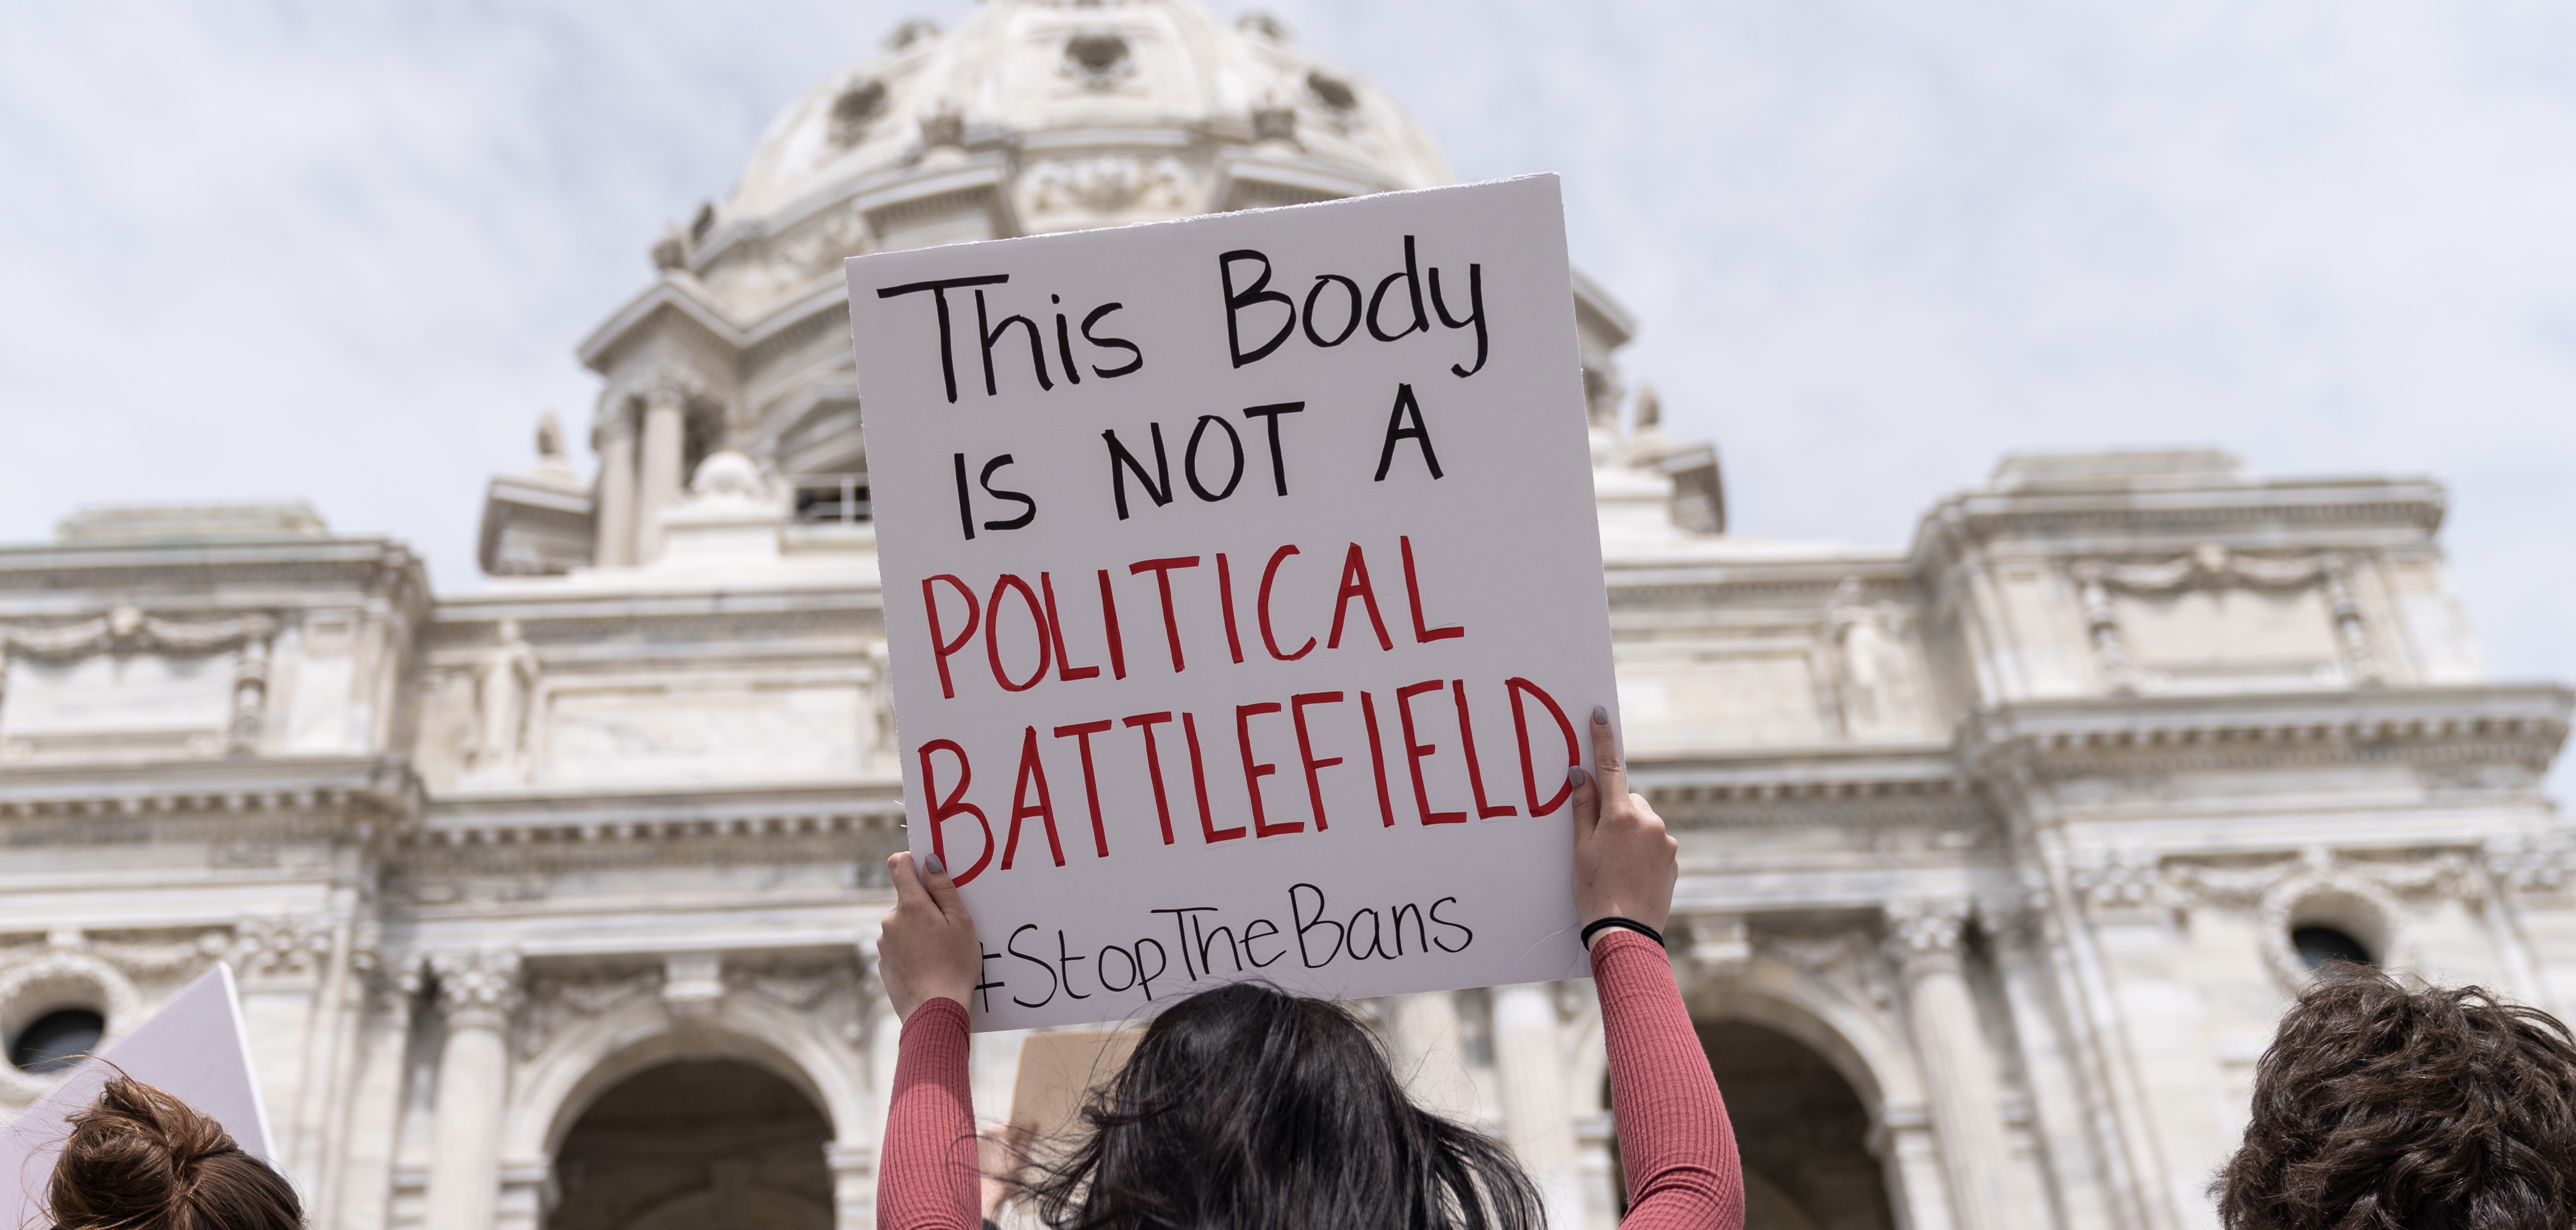 This Body
IS NOT A
POLITICAL
BATTLEFIELD
#StopTheBans